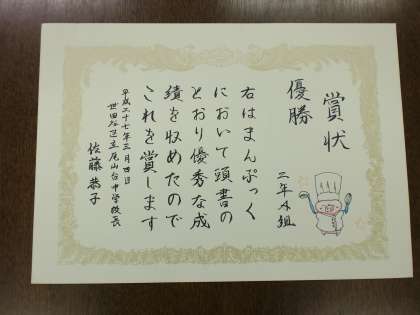 賞状
優勝
二年4組
右はまんぷっく
において頭書の
とおり優秀な成
績を収めたので
これを賞します
平成二十七年三月四日
世田谷区立尾山台中学校長
佐藤恭子